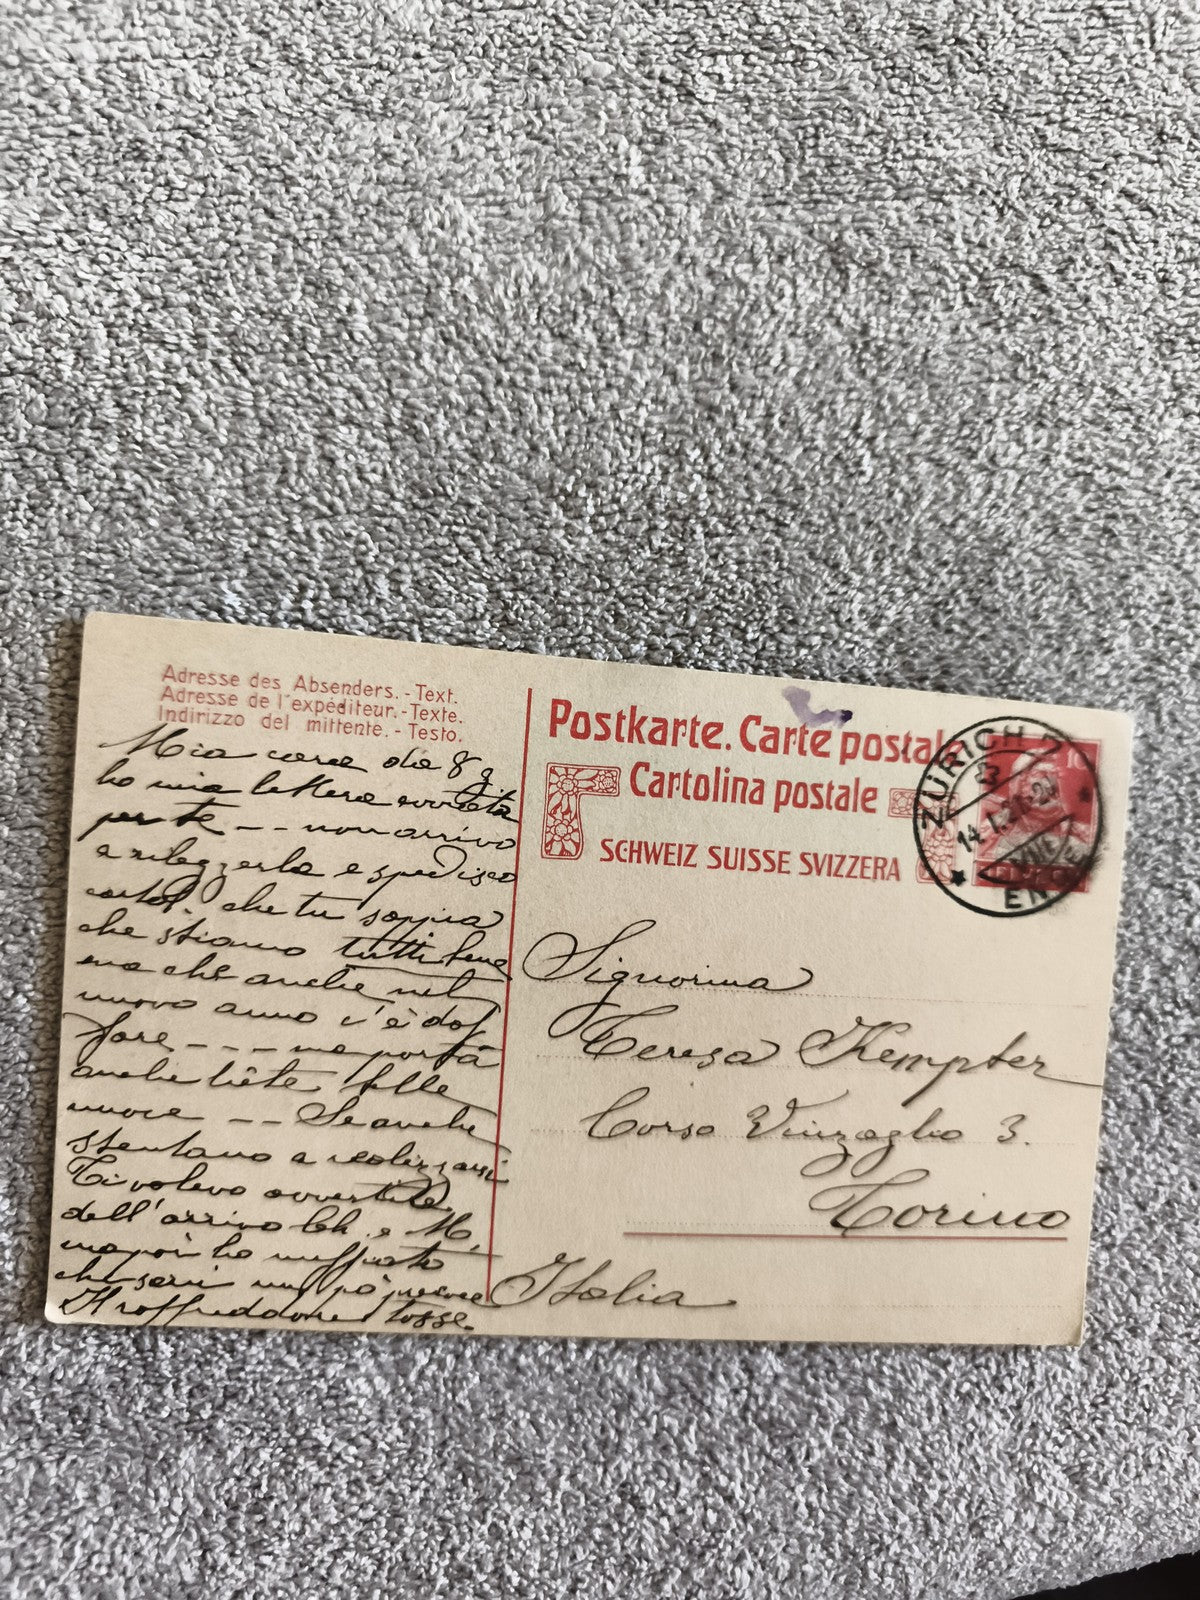 Adresse des Absenders. - Text.
Adresse de l'expéditeur. - Texte.
Indirizzo del mittente. - Testo.
Mia cara da 8 g
ho mia lettera avviata
per te - - non arrivo
a rileggerla e spedisco
cartol. che tu sappia
che stiamo tutti bene
ma che anche nel
nuovo anno c'è da
fare - - - ma
anche liete belle
nuove - - Se anche
stentano a realizzarsi
Ti volevo avvertire
dell'arrivo e M.
ma poi ho
che seri un pò
Il raffreddore tosse.
Postkarte. Carte postale
Cartolina postale
SCHWEIZ SUISSE SVIZZERA
10
ZÜRICH
3
14.I.21-24
ENGE
Signorina
Teresa Kempter
Corso Vinzaglio 3.
Torino
Italia